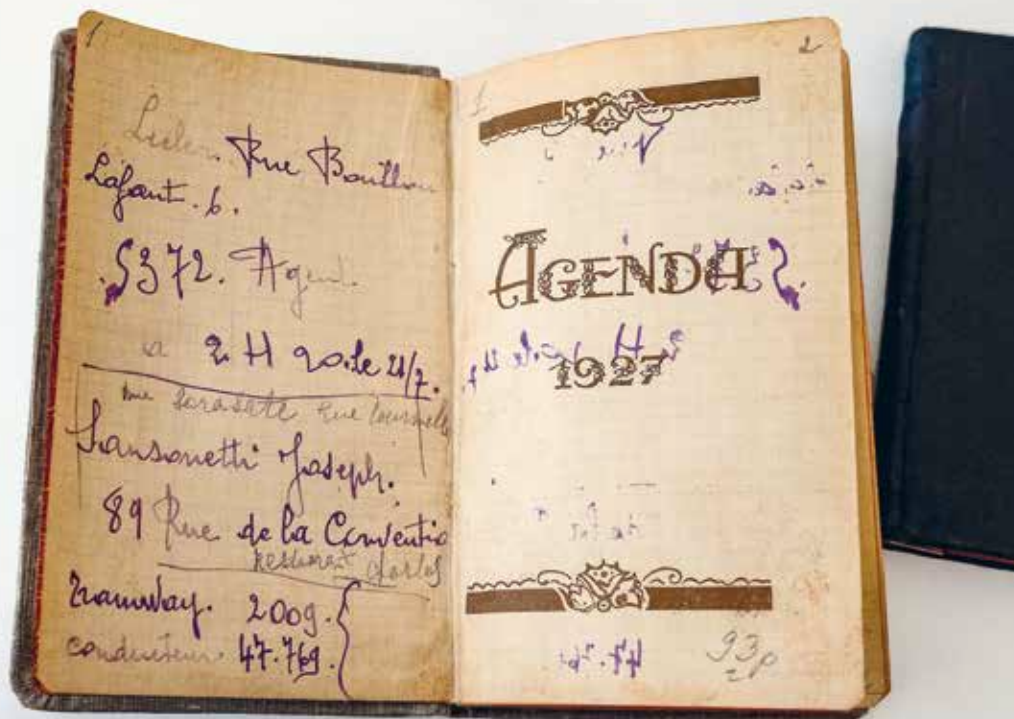 1
Rue Bouillon
Lafant. 6.
5372. Agent.
a 2. H 20. le 21/7.
rue Sarasate rue
Sansonetti Joseph.
89 Rue de la Conventio
Restaurant Charlos
Tramway. 2009.
conducteur. 47.769.
2
1
AGENDA
1927
93p
2